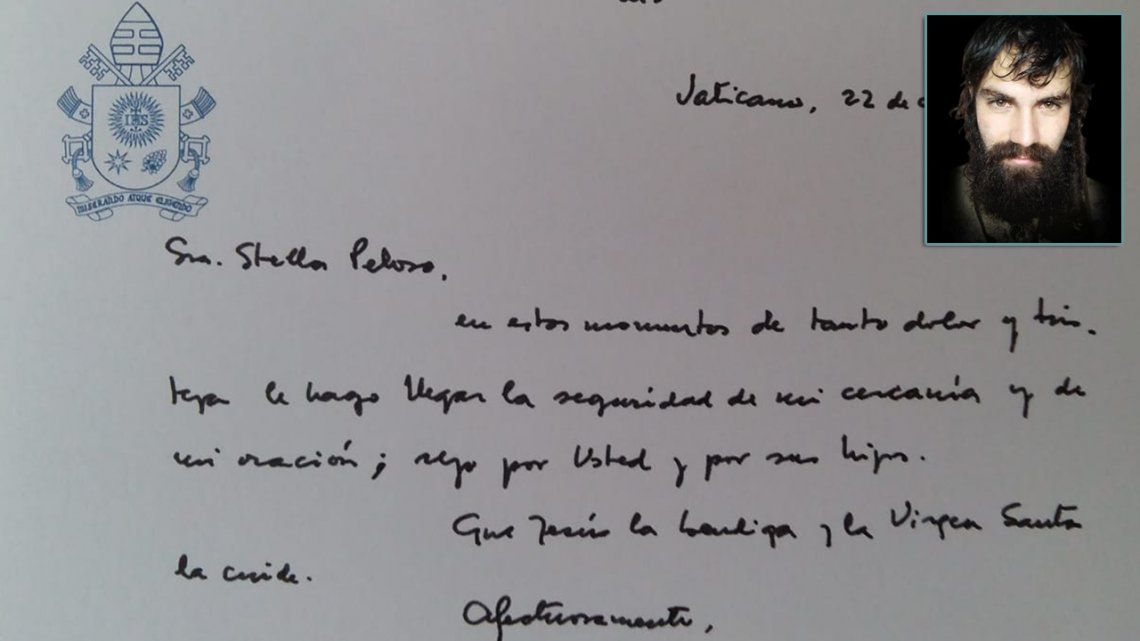 Vaticano, 22 de
IHS
MISERANDO ATQUE ELIGENDO
Sra. Stella Peloso,
en estos momentos de tanto dolor y tris-
teza le hago llegar la seguridad de mi cercanía y de
mi oración; rezo por Usted y por sus hijos.
Que Jesús la bendiga y la Virgen Santa
la cuide.
Afectuosamente,